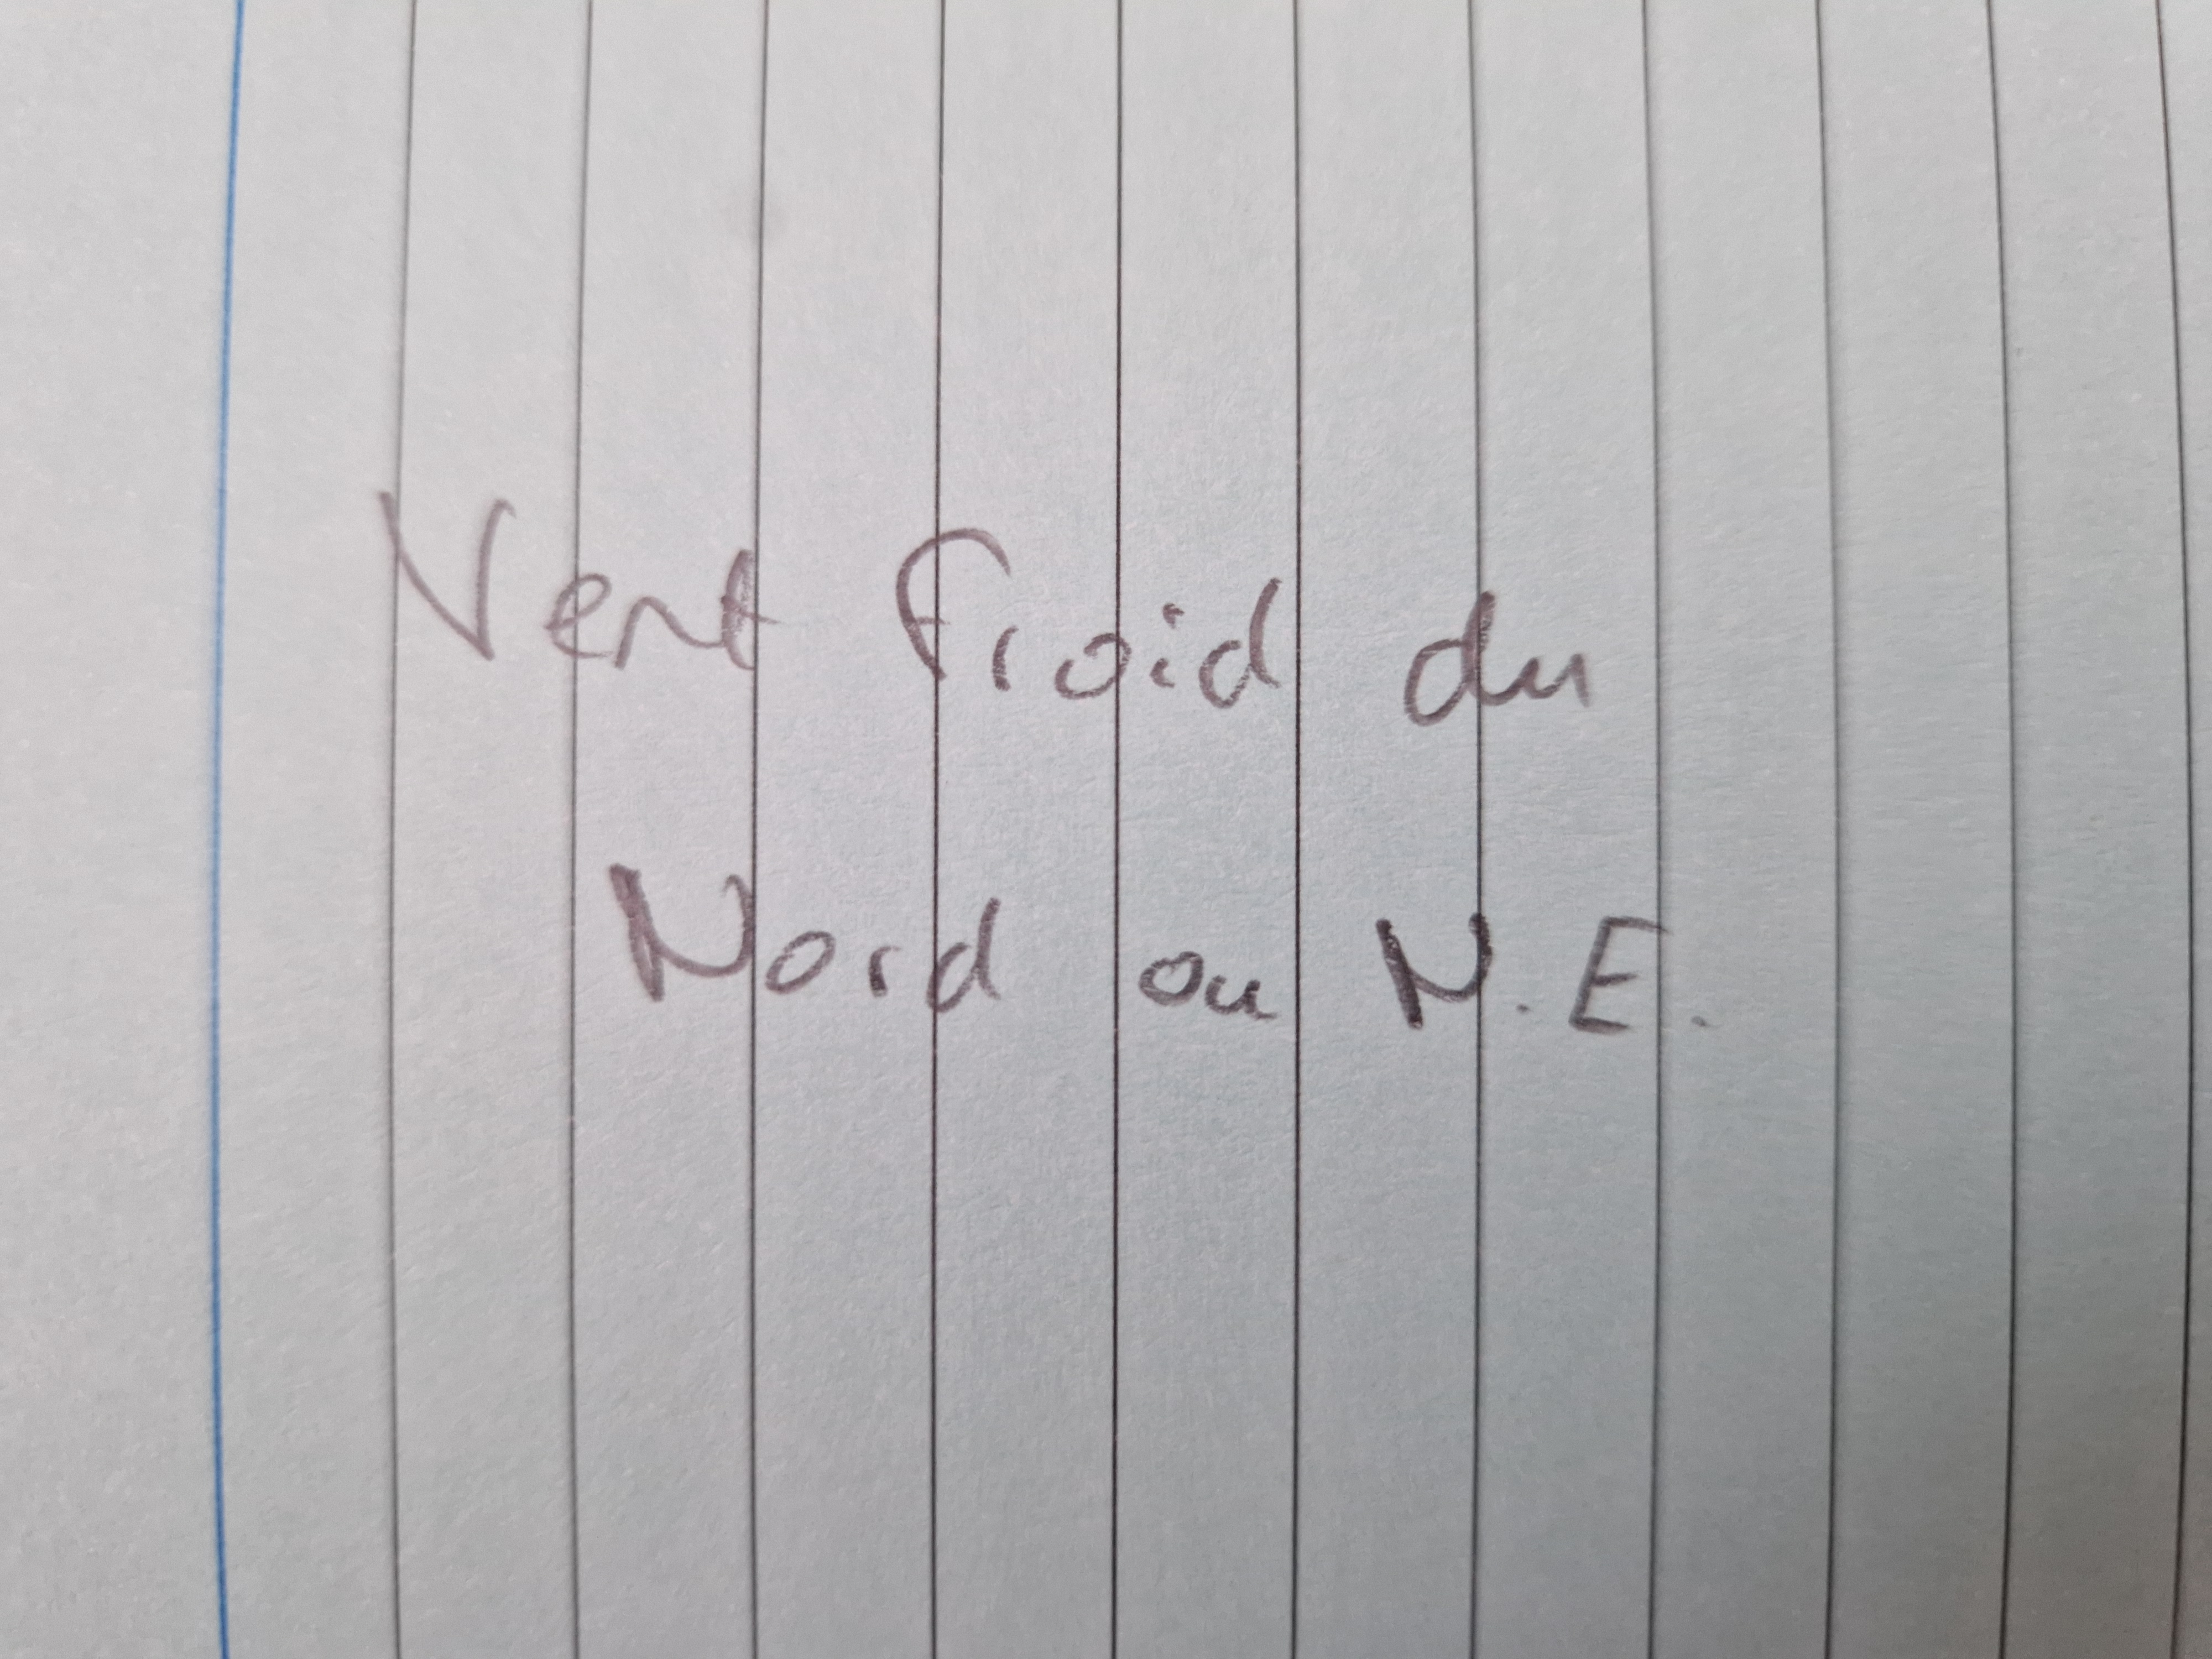 Vent froid du
Nord ou N.E.